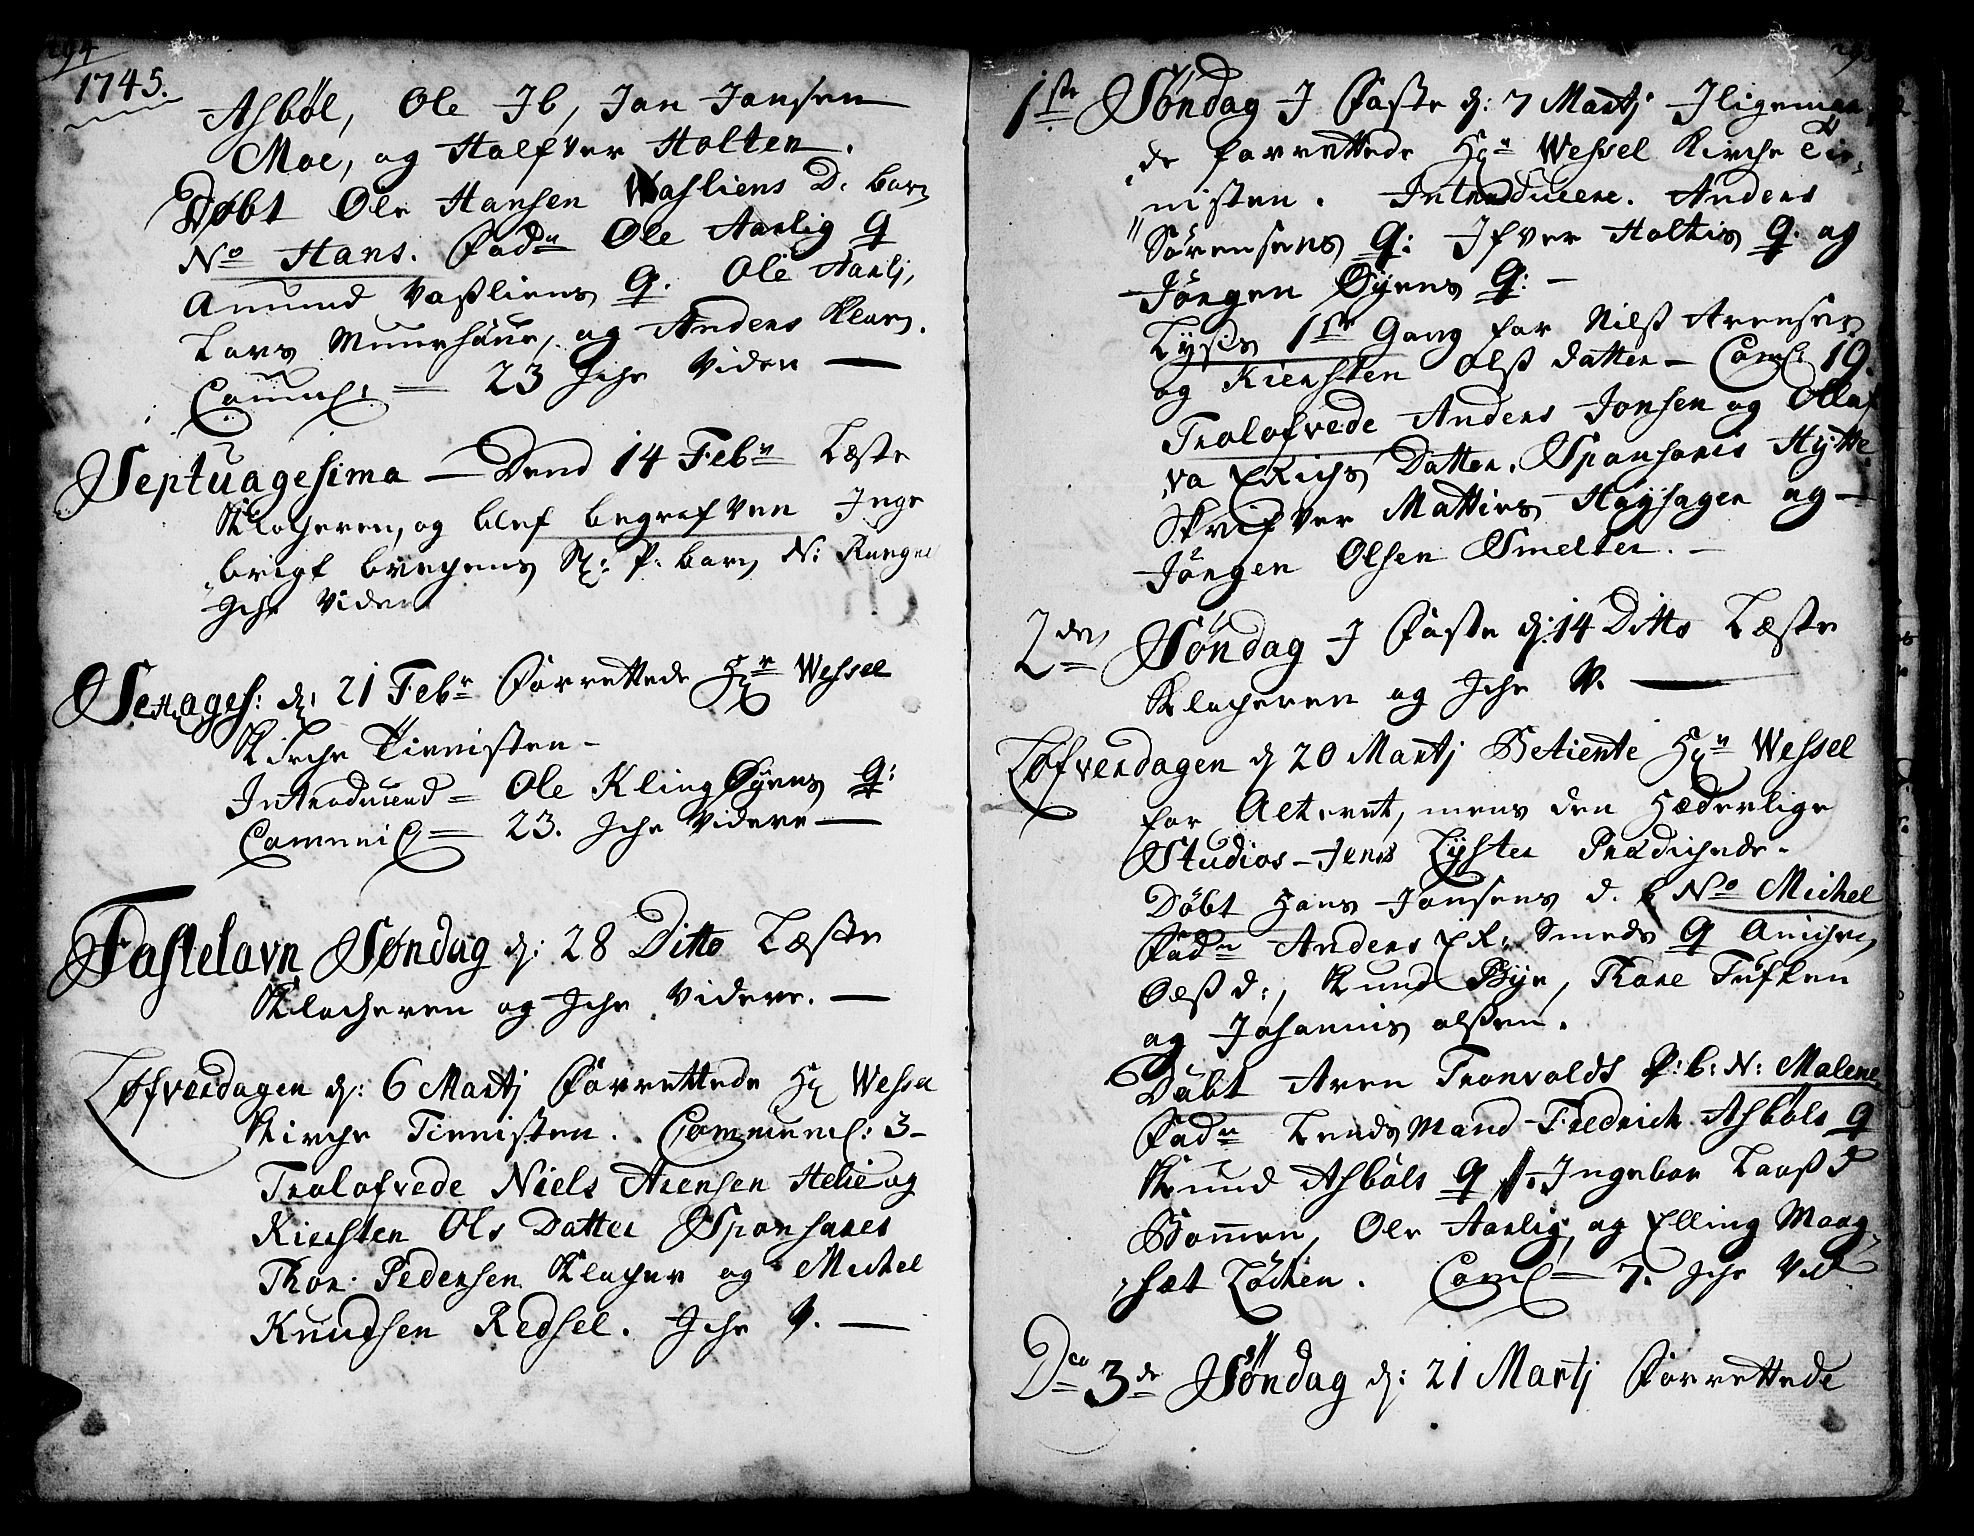 294
1745.
Asbøl, Ole Ib, Jan Jansen
Moe, og Halfver Holten.
Døbt Ole Hansen Wasliens D. barn
No Hans. Fadr Ole Aarlig Q
Amund Vassliens Q. Ole Aarlj,
Lars Muurhäue, og Anders
Comunc: = 23 Iche Viden —
Septuagesima — Dend 14 Febr Læste
Klocheren, og blef begrafven Inge
brigt S: P. barn N:
Iche Viden
Sexages: d: 21 Febr Forrettede Hr Wessel
Kirche Tienisten –
Introducerd = Ole Kling Øyens Q:
Comunic = 23. Iche Videre —
Fastelavn Søndag d: 28 Ditto Læste
Klocheren og Iche Videre. —
Løfverdagen d: 6 Martj Forrettede Hr Wessel
Kirche Tienisten. Communc: 3 –
Trolofvede Niels Arensen Helie og
Kiersten Ols Datter Sponsores
Thor Pedersen Klocher og Michel
Knudsen Redsel. Iche V. —
1ste Søndag I Faste d: 7 Martj Iligemaa
de forrettede Hr Wessel Kirche Tie
nisten. Introducere. Anders
Sörensens Q: Ifver Holtes Q. og
Jörgen Øyens Q: –
Lyses 1ste Gang for Nilss Arensen
og Kiersten Olss datter – Comc: 19.
Trolofvede Anders Jonsen og Olla
va Erichs Datter. Sponsores Hytte
Skrifver Matties Høysagen og —
Jörgen Olsen Smelter. –
2den Søndag I Faste d: 14 Ditto Læste
Klocheren og Iche V. —
Løfverdagen d 20 Martj Betiente Hr Wessel
for Alteret, mens den Hæderlige
Studios – Jens Lyster Prædichede.
Döbt Hans Jonsens d. b No Michel
Fadr Anders Er: Smeds Q
Olss d:, Knud Bye, Thore Tufften
og Johannes olssen.
Döbt Aren Tronvolds P: b: N: Malene
Fadr Lends Mand Fredrich Asböls Q
Knud Asböls Q Ingebor Larss d
Bommen, Ole Aarlig, og Elling Maag
sæt Löchen. Comc = 7. Iche Vid
Do 3de Søndag d: 21 Martj Forrettede